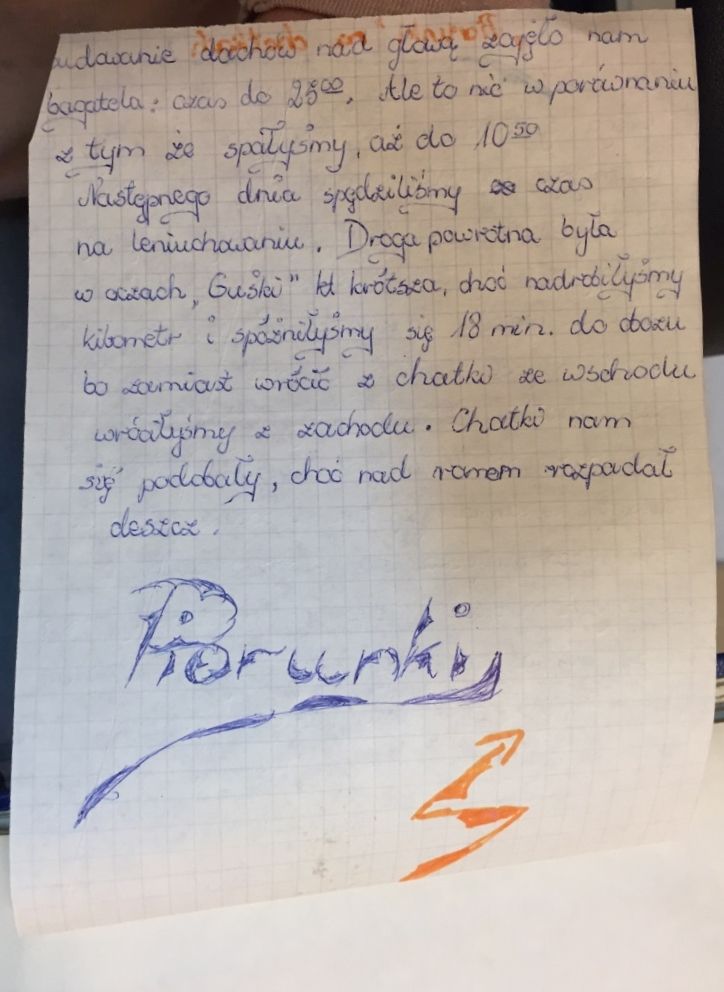 budowanie dachów nad głową zajęło nam
bagatela: czas do 23⁰⁰. Ale to nic w porównaniu
z tym że spałyśmy, aż do 10⁵⁰
Następnego dnia spędziliśmy czas
na leniuchowaniu. Droga powrotna była
w oczach „Guśki" krótsza, choć nadrobiłyśmy
kilometr i spóźniłyśmy się 18 min. do obozu
bo zamiast wrócić z chatki ze wschodu
wróciłyśmy z zachodu. Chatki nam
się podobały, choć nad ranem rozpadał
deszcz.
Piorunki